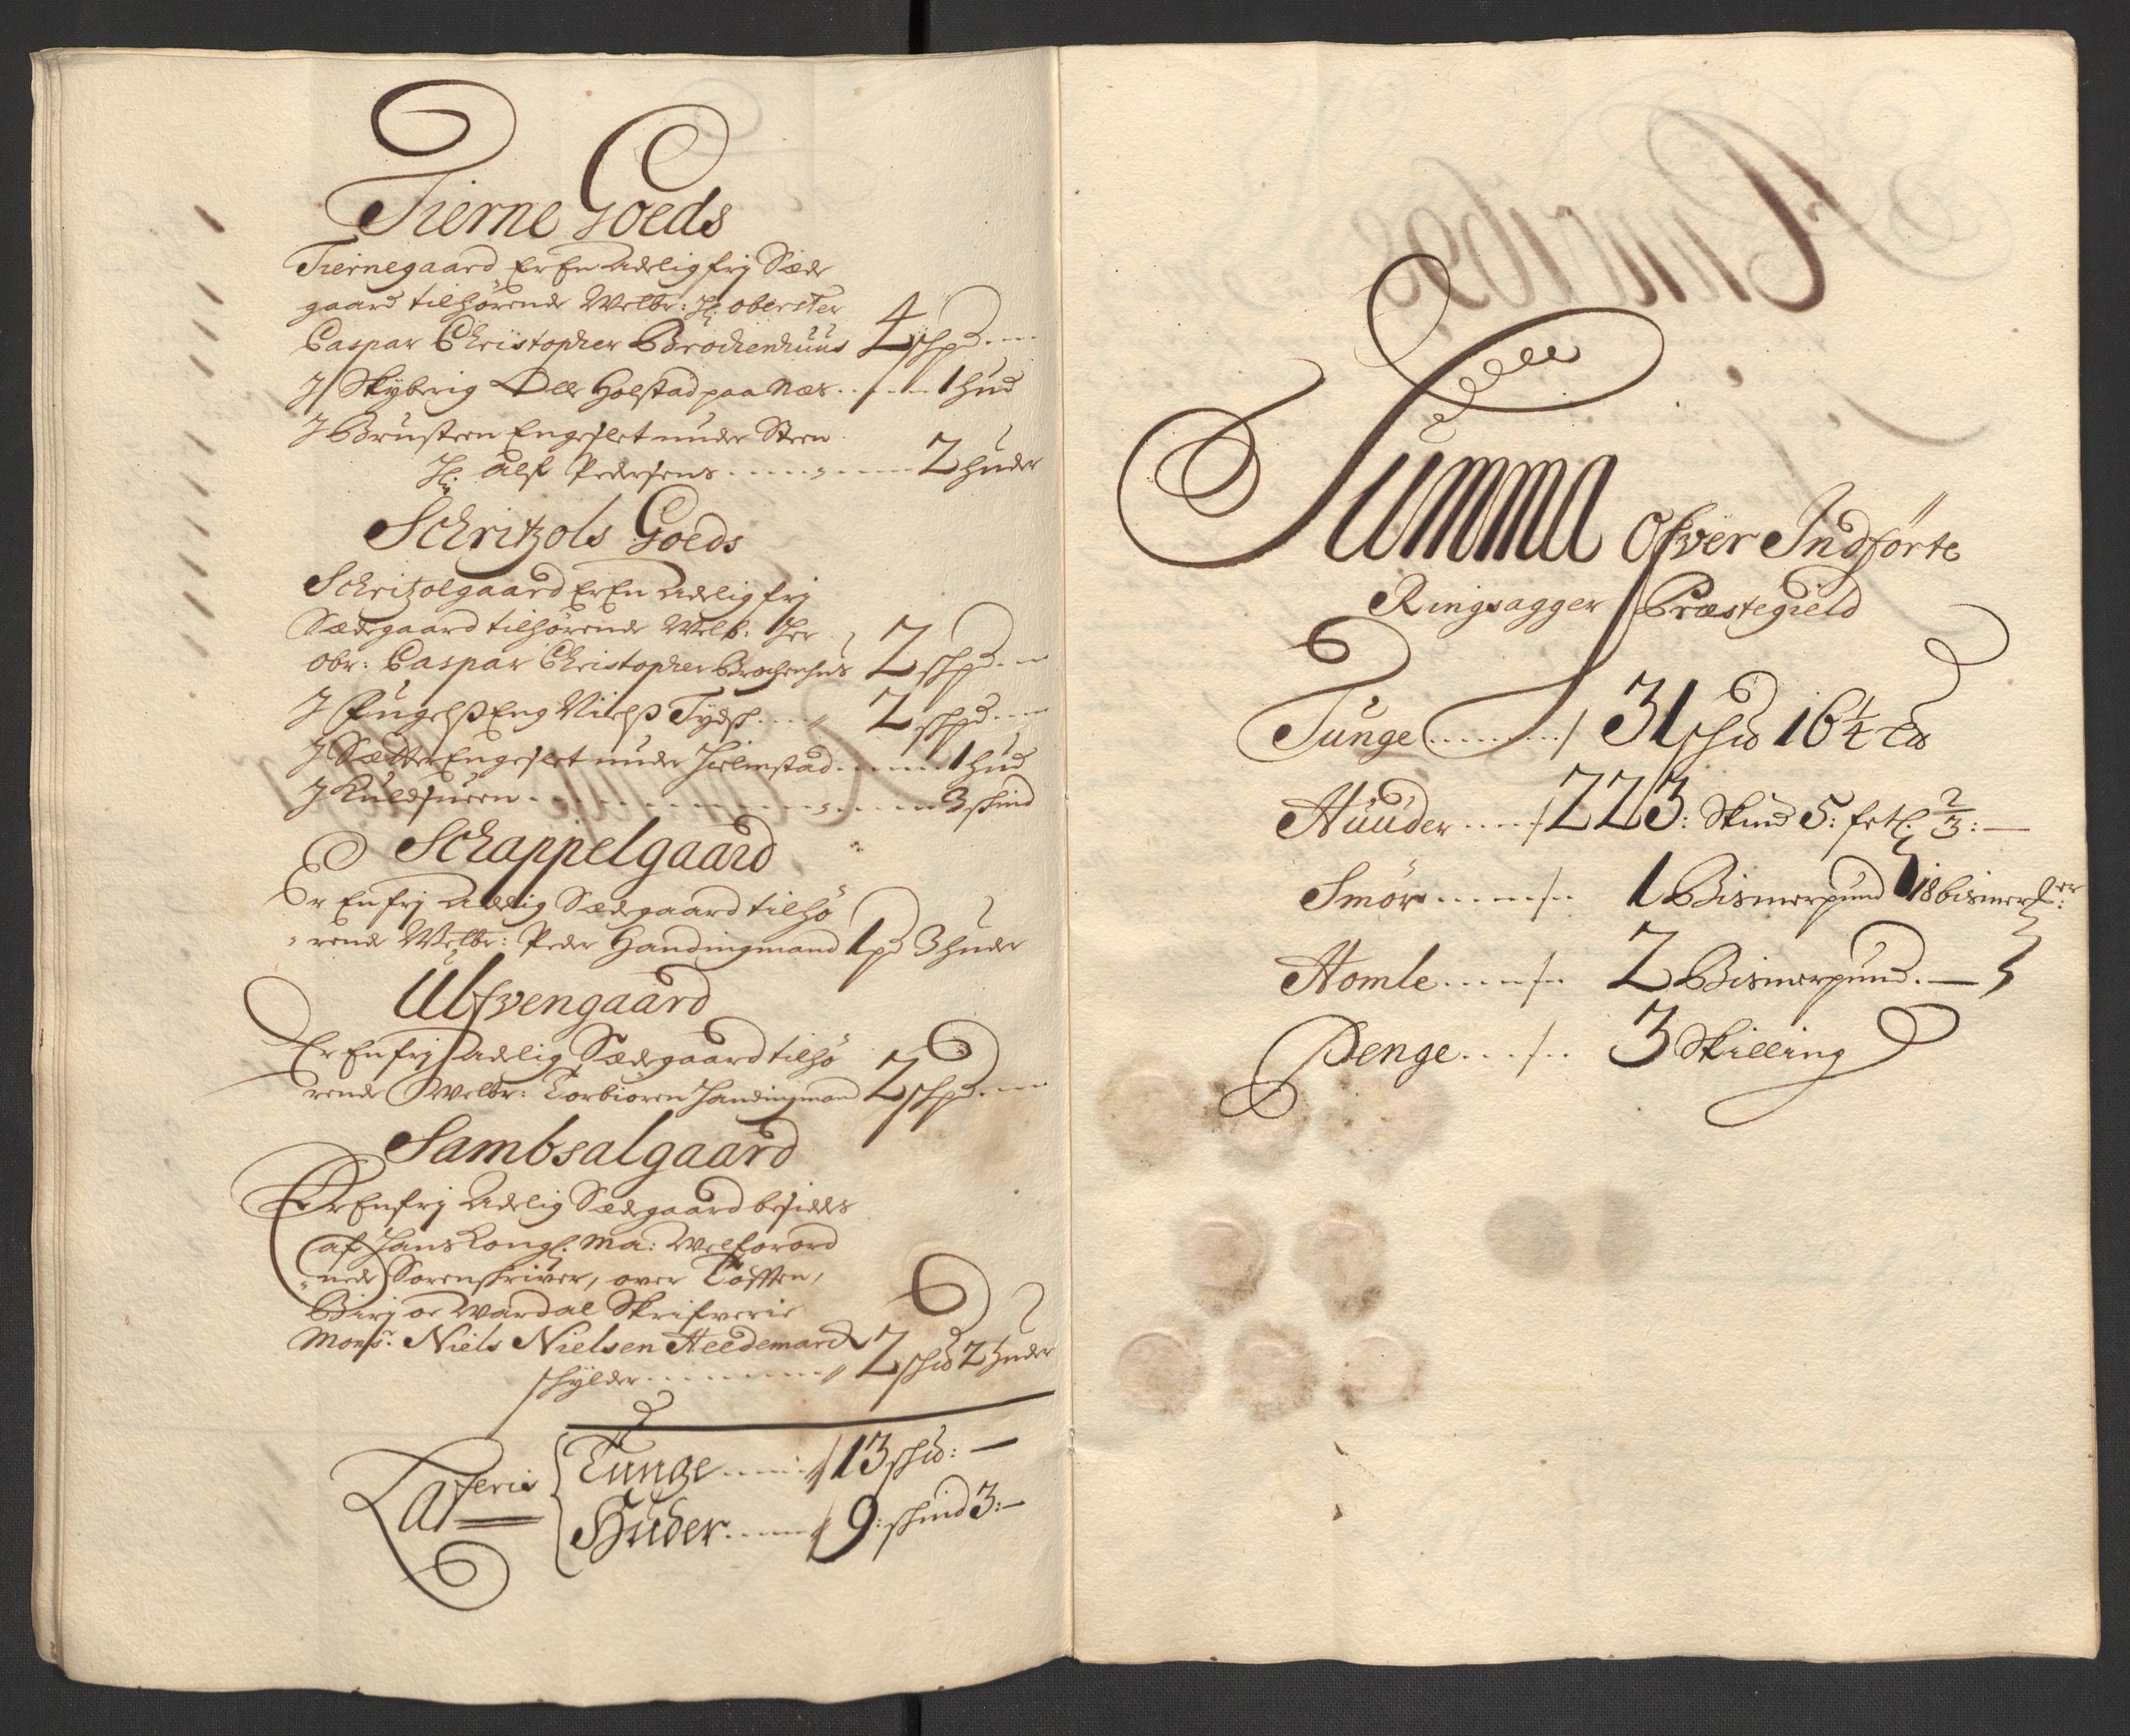 Tierne Goeds
Tiernegaard Er En Adelig frj Sæde
gaard tilhørende Welbr: Hr: Oberster
Caspar Christopher Brochenhuus 4 schpd
J Skyberig Olle Holstad paa Næs 1 hud
J Brusteen Engeslet under Steen
Hr: Alf Pedersens 2 huder
Schritzols Goeds
Schritzolgaard Er En Adelig frj
Sædegaard tilhørende Welb: Her
Obr: Caspar Christopher Brochenhus 2 schpd
J Eng Nielß Tydsk 2 schpd
J Sætter Engeslet under Hielmstad 1 hud
J 3 skind
Schappelgaard
Er En frj Adelig Sædegaard tilhø
rende Welbr: Peder Handingmand 1 pd 3 huder
Ulfvengaard
Er En frj Adelig Sædegaard tilhø
rende Welbr: Torbiören Handingmand 2 schpd
Sambsalgaard
Er En frj Adelig Sædegaard besiddes
af Hans Kongl: Ma: Welforord
nede Sorenskriver, over Totten,
Birj oc Wardal Skrifverie
Monsr. Niels Nielsen Heedemarck
skylder 2 schd 2 huder
Lateris
Tunge 13 schd: —
Huder 9: skind 3: —
Summa Ofver Indførte
Ringsagger Præstegield
Tunge 31 schd 16 1/4 Ld
Huuder 223: Skind 5: 2/3: —
Smör 1 Bismerpund 18 bismer
Homle 2 Bismerpund. —
Penge 3 Skilling